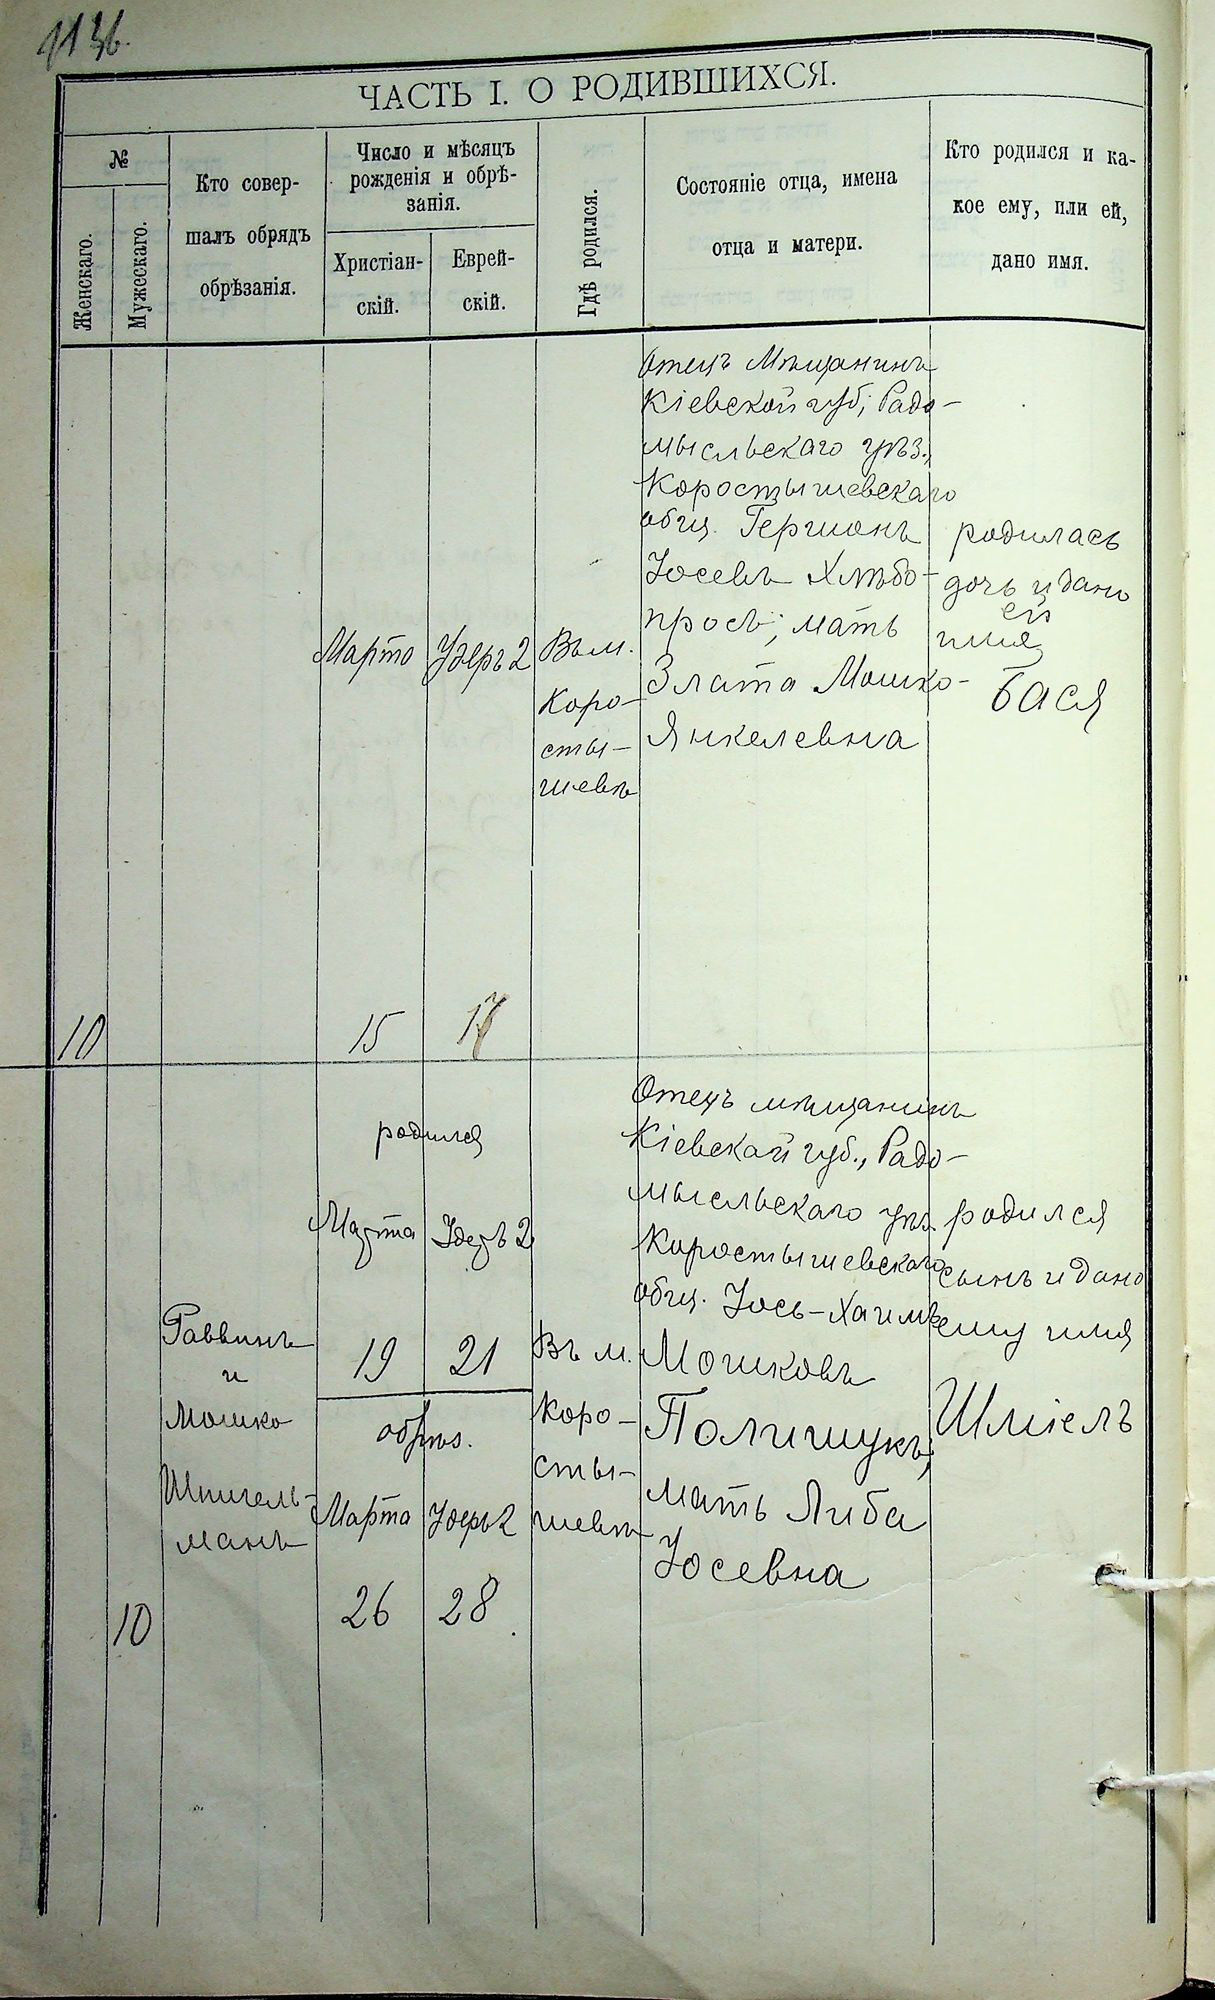 113б.
ЧАСТЬ I. О РОДИВШИХСЯ.
№
Женскаго.
Мужескаго.
Кто совер-
шалъ обрядъ
обрѣзанія.
Число и мѣсяцъ
рожденія и обрѣ-
занія.
Христіан-
скій.
Еврей-
скій.
Гдѣ родился.
Состояніе отца, имена
отца и матери.
Кто родился и ка-
кое ему, или ей,
дано имя.
10
Марта
15
Удеръ 2
17
Въ м.
Коро-
сты-
шевѣ
Отецъ Мѣщанинъ
Кіевской губ., Радо-
мысльскаго уѣз.,
Коростышевскаго
общ. Гершонъ
Іосевъ Хлѣбо-
просъ; мать
Злата Мошко-
Янкелевна
родилась
дочь и дано
ей
имя
Бася
10
Раввинъ
и
Мошко
Шпигель-
манъ
родился
Марта
Удеръ 2
19
21
обрѣз.
Марта
Удеръ 2
26
28
Въ м.
Коро-
сты-
шевѣ
Отецъ мѣщанинъ
Кіевской губ., Радо-
мысльскаго уѣз.
Коростышевскаго
общ. Іось-Хаимъ
Мошковъ
Полищукъ,
мать Либа
Іосевна
родился
сынъ и дано
ему имя
Шміелъ